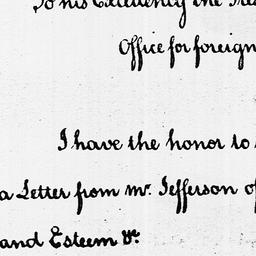 To his Excellency the Pres
Office for foreign
I have the honor to
a Letter from Mr. Jefferson of
and Esteem &c.